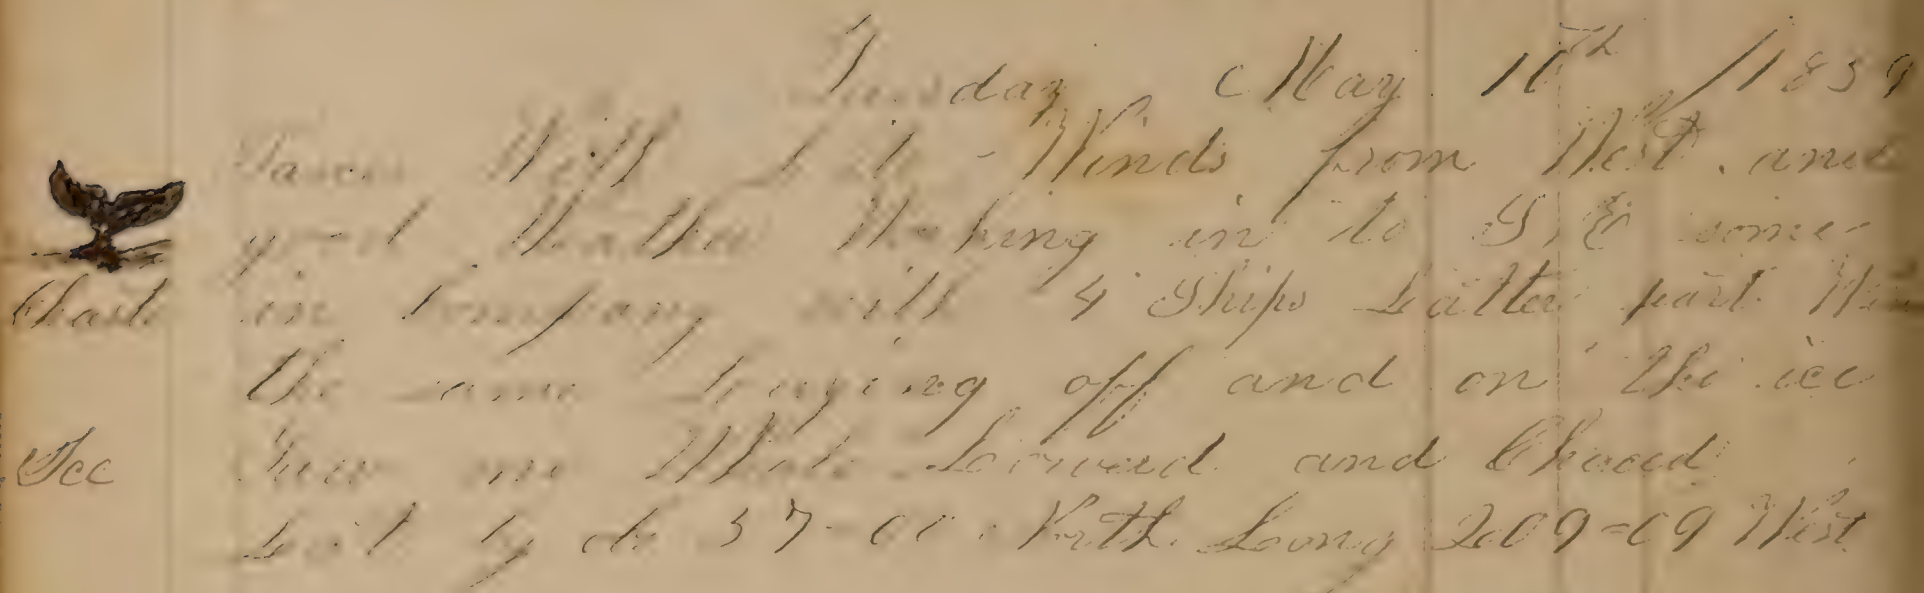 Tuesday May 10th /1859
With Light Winds from West. and
good Weather Working in to S, E some
in Company with 4 Ships Latter part
the same off and on the ice
Saw one Whale Lowered and Chaced
Lat by ob 57-00 North Long 209=09 West